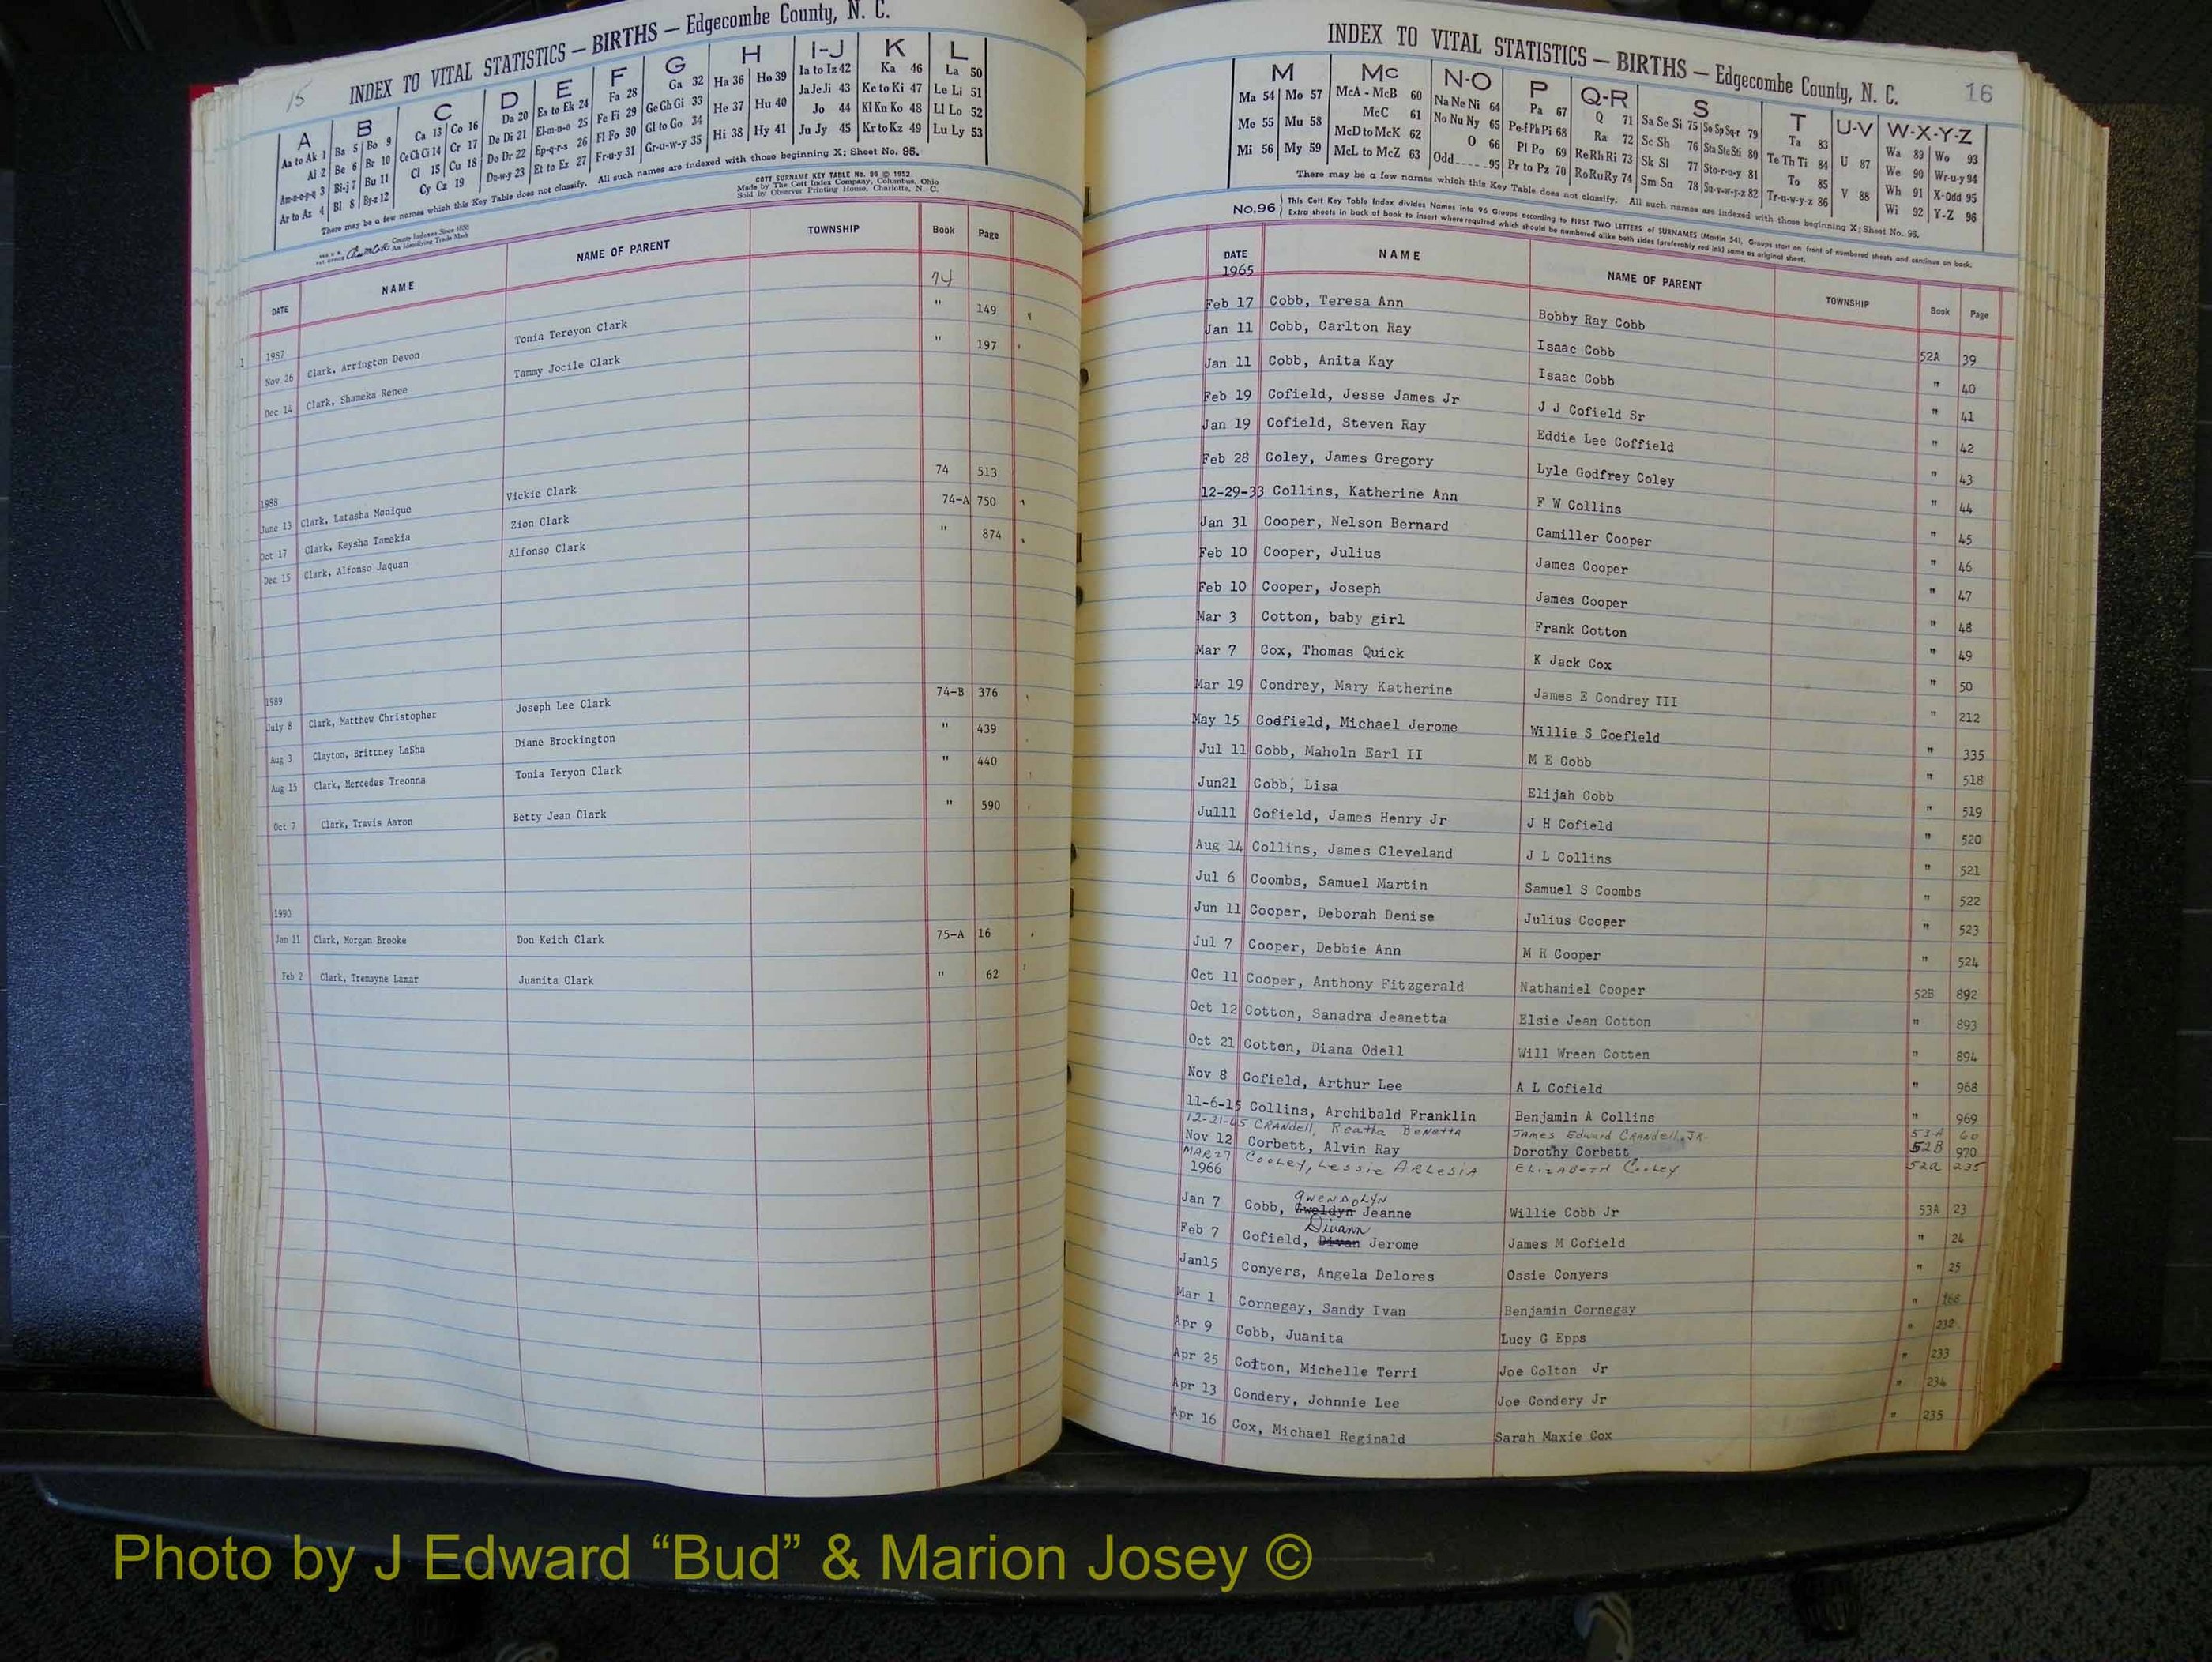 15
INDEX TO VITAL STATISTICS — BIRTHS — Edgecombe County, N. C.
A B C D E F G H I-J K L
Aa to Ak 1 Ba 5 Bo 9 Ca 13 Co 16 Da 20 Ea to Ek 24 Fa 28 Ga 32 Ha 36 Ho 39 Ia to Iz 42 Ka 46 La 50
Al 2 Be 6 Br 10 Ce Ch Ci 14 Cr 17 De Di 21 El-m-n-o 25 Fe Fi 29 Ge Gh Gi 33 He 37 Hu 40 Ja Je Ji 43 Ke to Ki 47 Le Li 51
Am-n-o-p-q 3 Bi-j 7 Bu 11 Cl 15 Cu 18 Do Dr 22 Ep-q-r-s 26 Fl Fo 30 Gl to Go 34 Hi 38 Hy 41 Jo 44 Kl Kn Ko 48 Ll Lo 52
Ar to Az 4 Bl 8 By-z 12 Cy Cz 19 Du-w-y 23 Et to Ez 27 Fr-u-y 31 Gr-u-w-y 35 Ju Jy 45 Kr to Kz 49 Lu Ly 53
There may be a few names which this Key Table does not classify. All such names are indexed with those beginning X; Sheet No. 95.
COTT SURNAME KEY TABLE No. 96 © 1952
Made by The Cott Index Company, Columbus, Ohio
Sold by Observer Printing House, Charlotte, N. C.
County Indexes Since 1888
An Identifying Trade Mark
DATE NAME NAME OF PARENT TOWNSHIP Book Page
74
1 1987
Nov 26 Clark, Arrington Devon Tonia Tereyon Clark " 149
Dec 14 Clark, Shameka Renee Tammy Jocile Clark " 197
1988
June 13 Clark, Latasha Monique Vickie Clark 74 513
Oct 17 Clark, Keysha Tamekia Zion Clark 74-A 750
Dec 15 Clark, Alfonso Jaquan Alfonso Clark " 874
1989
July 8 Clark, Matthew Christopher Joseph Lee Clark 74-B 376
Aug 3 Clayton, Brittney LaSha Diane Brockington " 439
Aug 15 Clark, Mercedes Treonna Tonia Teryon Clark " 440
Oct 7 Clark, Travis Aaron Betty Jean Clark " 590
1990
Jan 11 Clark, Morgan Brooke Don Keith Clark 75-A 16
Feb 2 Clark, Tremayne Lamar Juanita Clark " 62
INDEX TO VITAL STATISTICS — BIRTHS — Edgecombe County, N. C.
16
M Mc N-O P Q-R S T U-V W-X-Y-Z
Ma 54 Mo 57 McA - McB 60 Na Ne Ni 64 Pa 67 Q 71 Sa Se Si 75 So Sp Sq-r 79 Ta 83 U 87 Wa 89 Wo 93
Me 55 Mu 58 McC 61 No Nu Ny 65 Pe-f Ph Pi 68 Ra 72 Sc Sh 76 Sta Ste Sti 80 Te Th Ti 84 V 88 We 90 Wr-u-y 94
Mi 56 My 59 McD to McK 62 O 66 Pl Po 69 Re Rh Ri 73 Sk Sl 77 Sto-r-u-y 81 To 85 Wh 91 X-Odd 95
McL to McZ 63 Odd 95 Pr to Pz 70 Ro Ru Ry 74 Sm Sn 78 Su-v-w-y-z 82 Tr-u-w-y-z 86 Wi 92 Y-Z 96
There may be a few names which this Key Table does not classify. All such names are indexed with those beginning X; Sheet No. 95.
No. 96 This Cott Key Table Index divides Names into 96 Groups according to FIRST TWO LETTERS of SURNAMES (Martin 54). Groups start on front of numbered sheets and continue on back.
Extra sheets in back of book to insert where required which should be numbered alike both sides (preferably red ink) same as original sheet.
DATE NAME NAME OF PARENT TOWNSHIP Book Page
1965
Feb 17 Cobb, Teresa Ann Bobby Ray Cobb 52A 39
Jan 11 Cobb, Carlton Ray Isaac Cobb " 40
Jan 11 Cobb, Anita Kay Isaac Cobb " 41
Feb 19 Cofield, Jesse James Jr J J Cofield Sr " 42
Jan 19 Cofield, Steven Ray Eddie Lee Coffield " 43
Feb 28 Coley, James Gregory Lyle Godfrey Coley " 44
12-29-33 Collins, Katherine Ann F W Collins " 45
Jan 31 Cooper, Nelson Bernard Camiller Cooper " 46
Feb 10 Cooper, Julius James Cooper " 47
Feb 10 Cooper, Joseph James Cooper " 48
Mar 3 Cotton, baby girl Frank Cotton " 49
Mar 7 Cox, Thomas Quick K Jack Cox " 50
Mar 19 Condrey, Mary Katherine James E Condrey III " 212
May 15 Codfield, Michael Jerome Willie S Coefield " 335
Jul 11 Cobb, Maholn Earl II M E Cobb " 518
Jun21 Cobb, Lisa Elijah Cobb " 519
Jul11 Cofield, James Henry Jr J H Cofield " 520
Aug 14 Collins, James Cleveland J L Collins " 521
Jul 6 Coombs, Samuel Martin Samuel S Coombs " 522
Jun 11 Cooper, Deborah Denise Julius Cooper " 523
Jul 7 Cooper, Debbie Ann M R Cooper " 524
Oct 11 Cooper, Anthony Fitzgerald Nathaniel Cooper 52B 892
Oct 12 Cotton, Sanadra Jeanetta Elsie Jean Cotton " 893
Oct 21 Cotten, Diana Odell Will Wreen Cotten " 894
Nov 8 Cofield, Arthur Lee A L Cofield " 968
11-6-15 Collins, Archibald Franklin Benjamin A Collins " 969
12-21-65 CRANdell, Reatha BeNetta JAmes Edward CRANdell, JR. 53-A 60
Nov 12 Corbett, Alvin Ray Dorothy Corbett 52B 970
MAR 27 Cooley, Lessie ARLESIA ELIZABETH Cooley 52a 235
1966
Jan 7 Cobb, Gwoldyn GwENDOLYN Jeanne Willie Cobb Jr 53A 23
Feb 7 Cofield, Divan Divann Jerome James M Cofield " 24
Jan15 Conyers, Angela Delores Ossie Conyers " 25
Mar 1 Cornegay, Sandy Ivan Benjamin Cornegay " 168
Apr 9 Cobb, Juanita Lucy G Epps " 232
Apr 25 Cotton, Michelle Terri Joe Colton Jr " 233
Apr 13 Condery, Johnnie Lee Joe Condery Jr " 234
Apr 16 Cox, Michael Reginald Sarah Maxie Cox " 235
Photo by J Edward “Bud” & Marion Josey ©